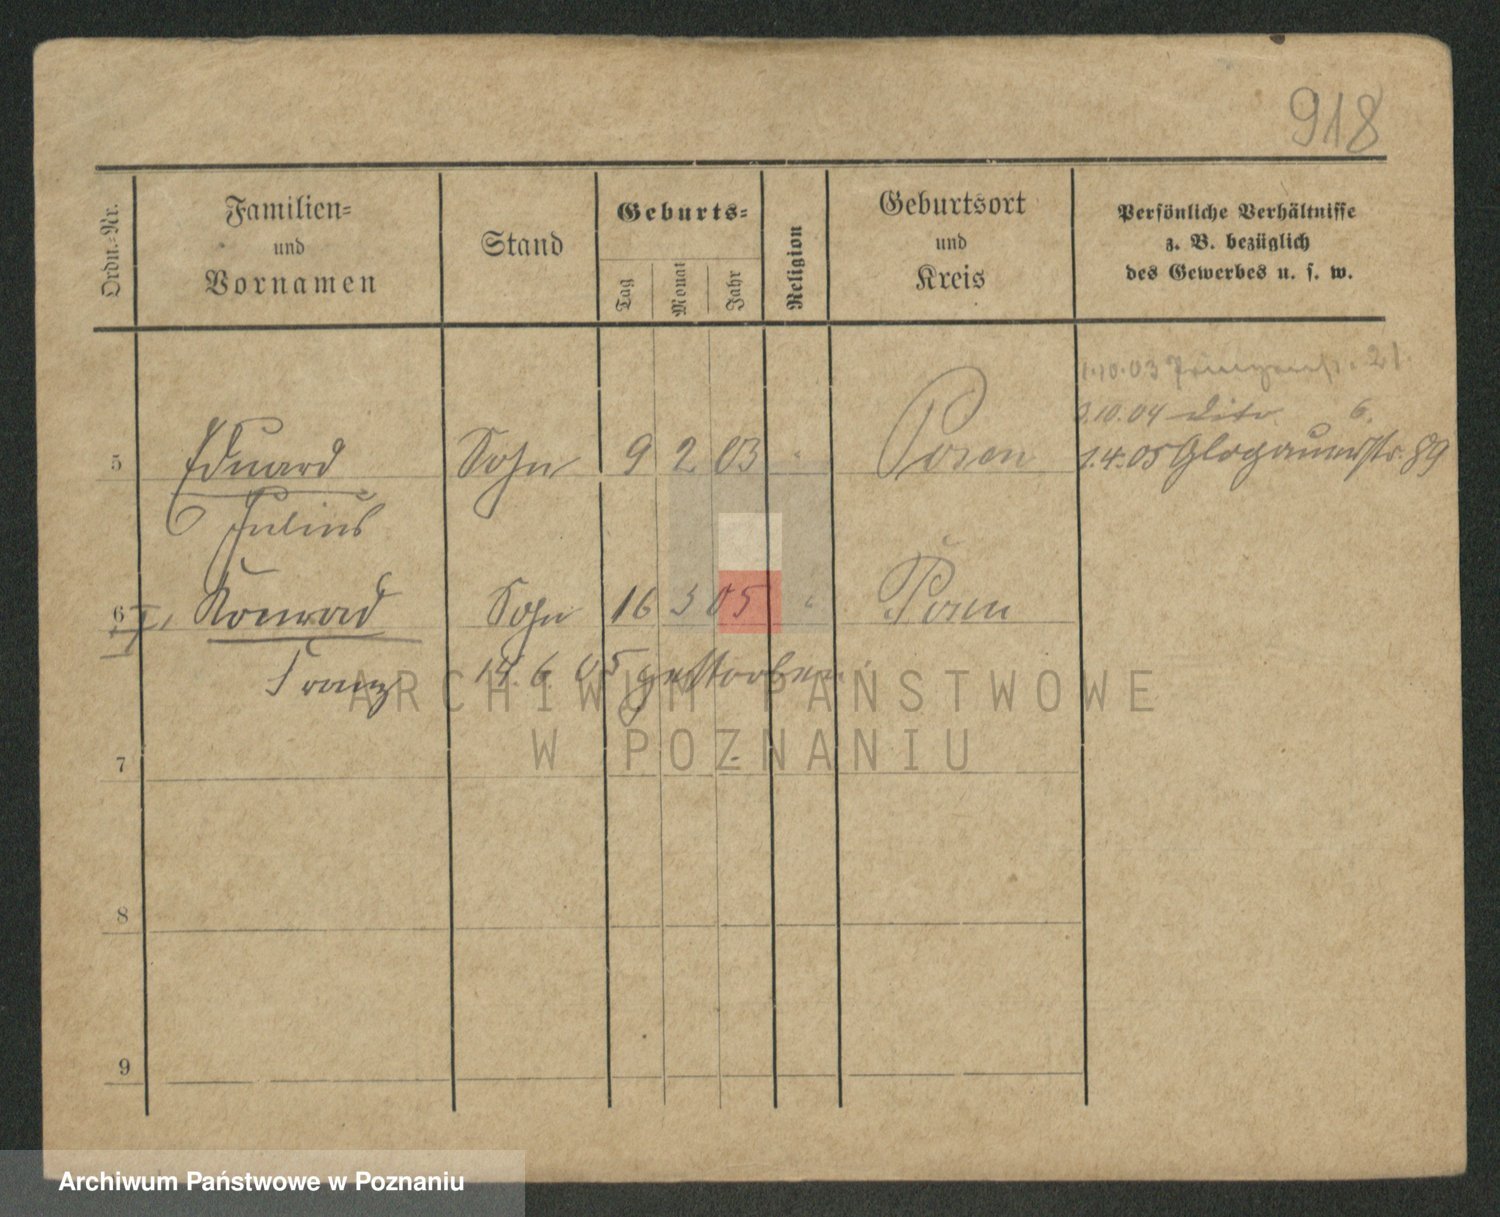 918
Ordn.-Nr.
Familien-
und
Vornamen
Stand
Geburts-
Tag
Monat
Jahr
Religion
Geburtsort
und
Kreis
Persönliche Verhältnisse
z. B. bezüglich
des Gewerbes u. s. w.
1.10.03 21.
2.10.04 dito 6.
5 Eduard Sohn 9 2 03 " Posen 1.4.05 Glogauerstr. 89
Julius
6 Konrad Sohn 16 3 05 " Posen
Franz 14.6 05 gestorben.
ARCHIWUM PAŃSTWOWE
W POZNANIU
7
8
9
Archiwum Państwowe w Poznaniu